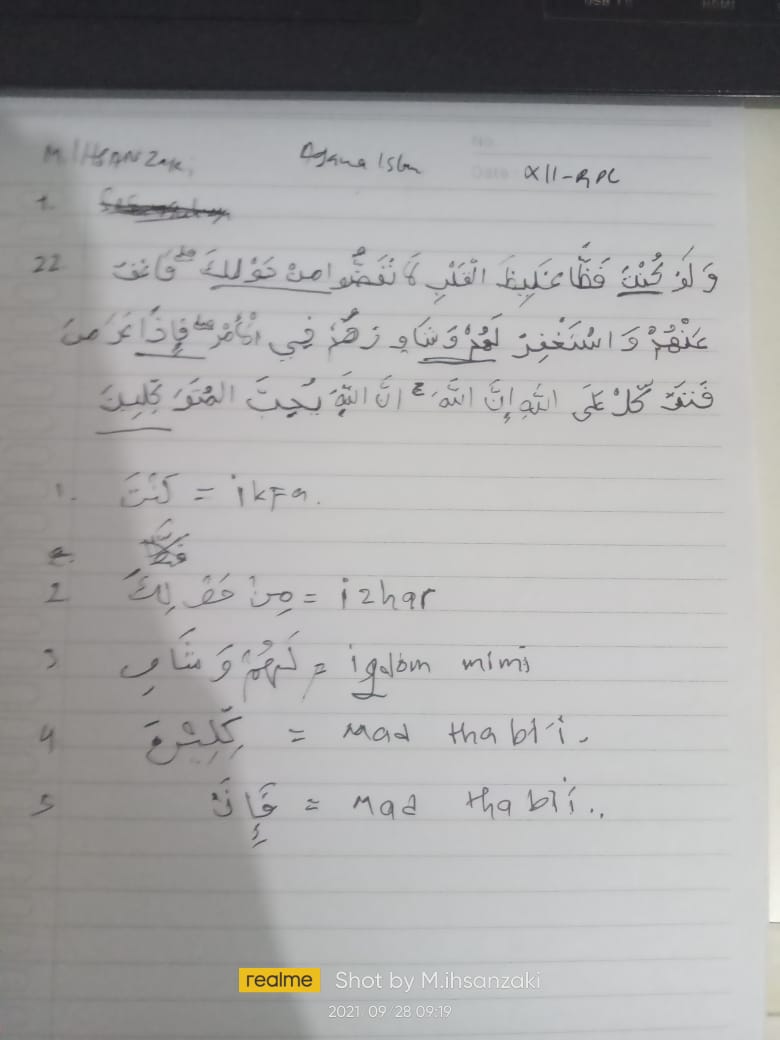 M. IHSANZAKI Agama Islam XII-RPL
1.
22 وَلَوْ كُنْتَ فَظًّا غَلِيظَ الْقَلْبِ لَا نْفَضُّوا مِنْ حَوْلِكَ ۖ فَاعْفُ
عَنْهُمْ وَاسْتَغْفِرْ لَهُمْ وَشَاوِرْهُمْ فِي الْأَمْرِ ۖ فَإِذَا عَزَمْتَ
فَتَوَكَّلْ عَلَى اللَّهِ إِنَّ اللَّهَ ۚ إِنَّ اللَّهَ يُحِبُّ الْمُتَوَكِّلِينَ
1. كُنْتَ = ikFa.
2 مِنْ حَوْلِكَ = izhar
3 لَهُمْ وَشَاوِ = mimi
4 = Mad thabi'i.
5 = Mad thabi'i..
realme Shot by M.ihsanzaki
2021 09/28 09:19